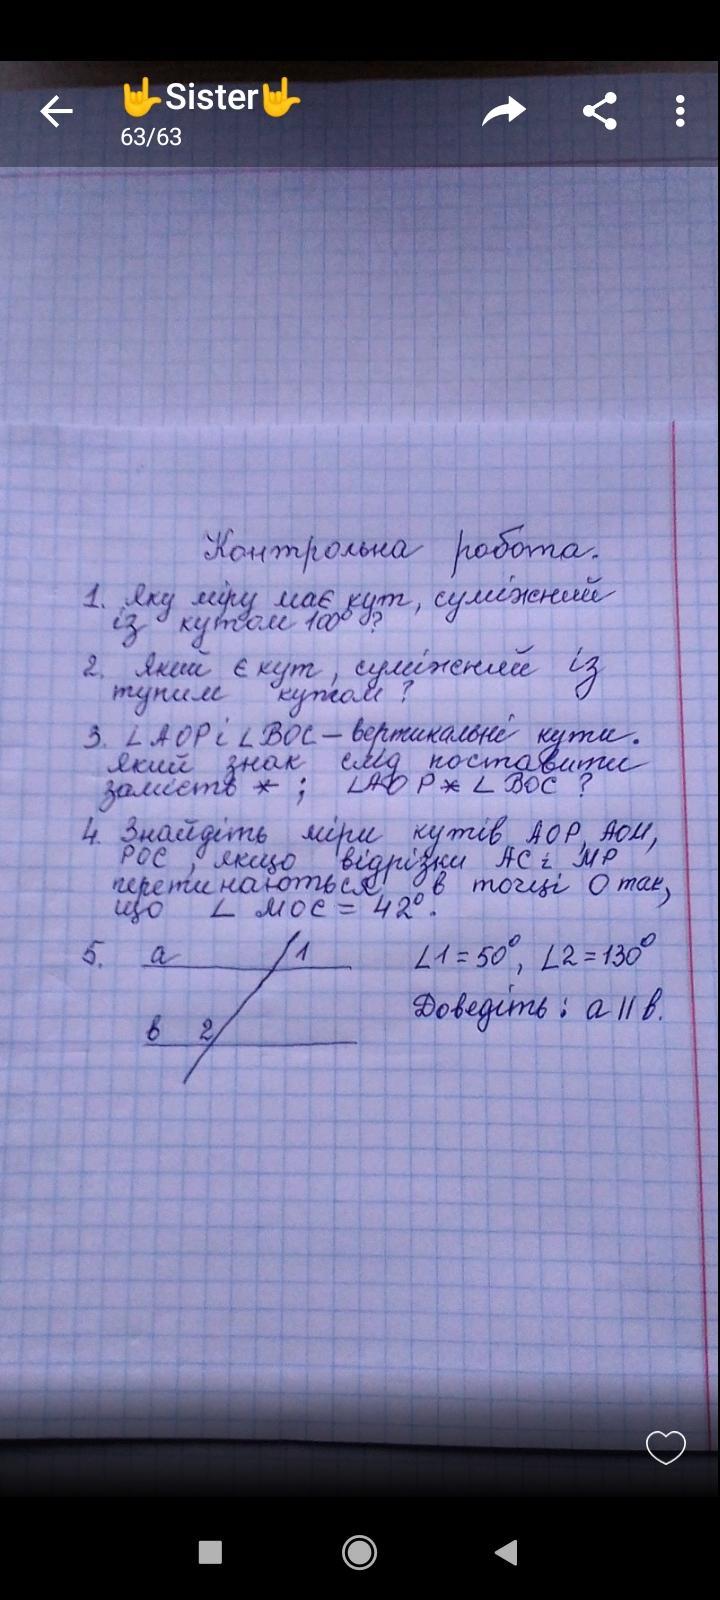 🤟Sister🤟
63/63
Контрольна робота.
1. Яку міру має кут, суміжний
із кутом 100° ?
2. Який є кут, суміжний із
тупим кутом ?
3. ∠AOP і ∠BOC – вертикальні кути.
Який знак слід поставити
замість * ; ∠AOP * ∠BOC ?
4. Знайдіть міри кутів AOP, AOM,
POC, якщо відрізки AC і MP
перетинаються в точці O так,
що ∠ MOC = 42°.
5. a 1 ∠1 = 50°, ∠2 = 130°
Доведіть : a || b.
b 2